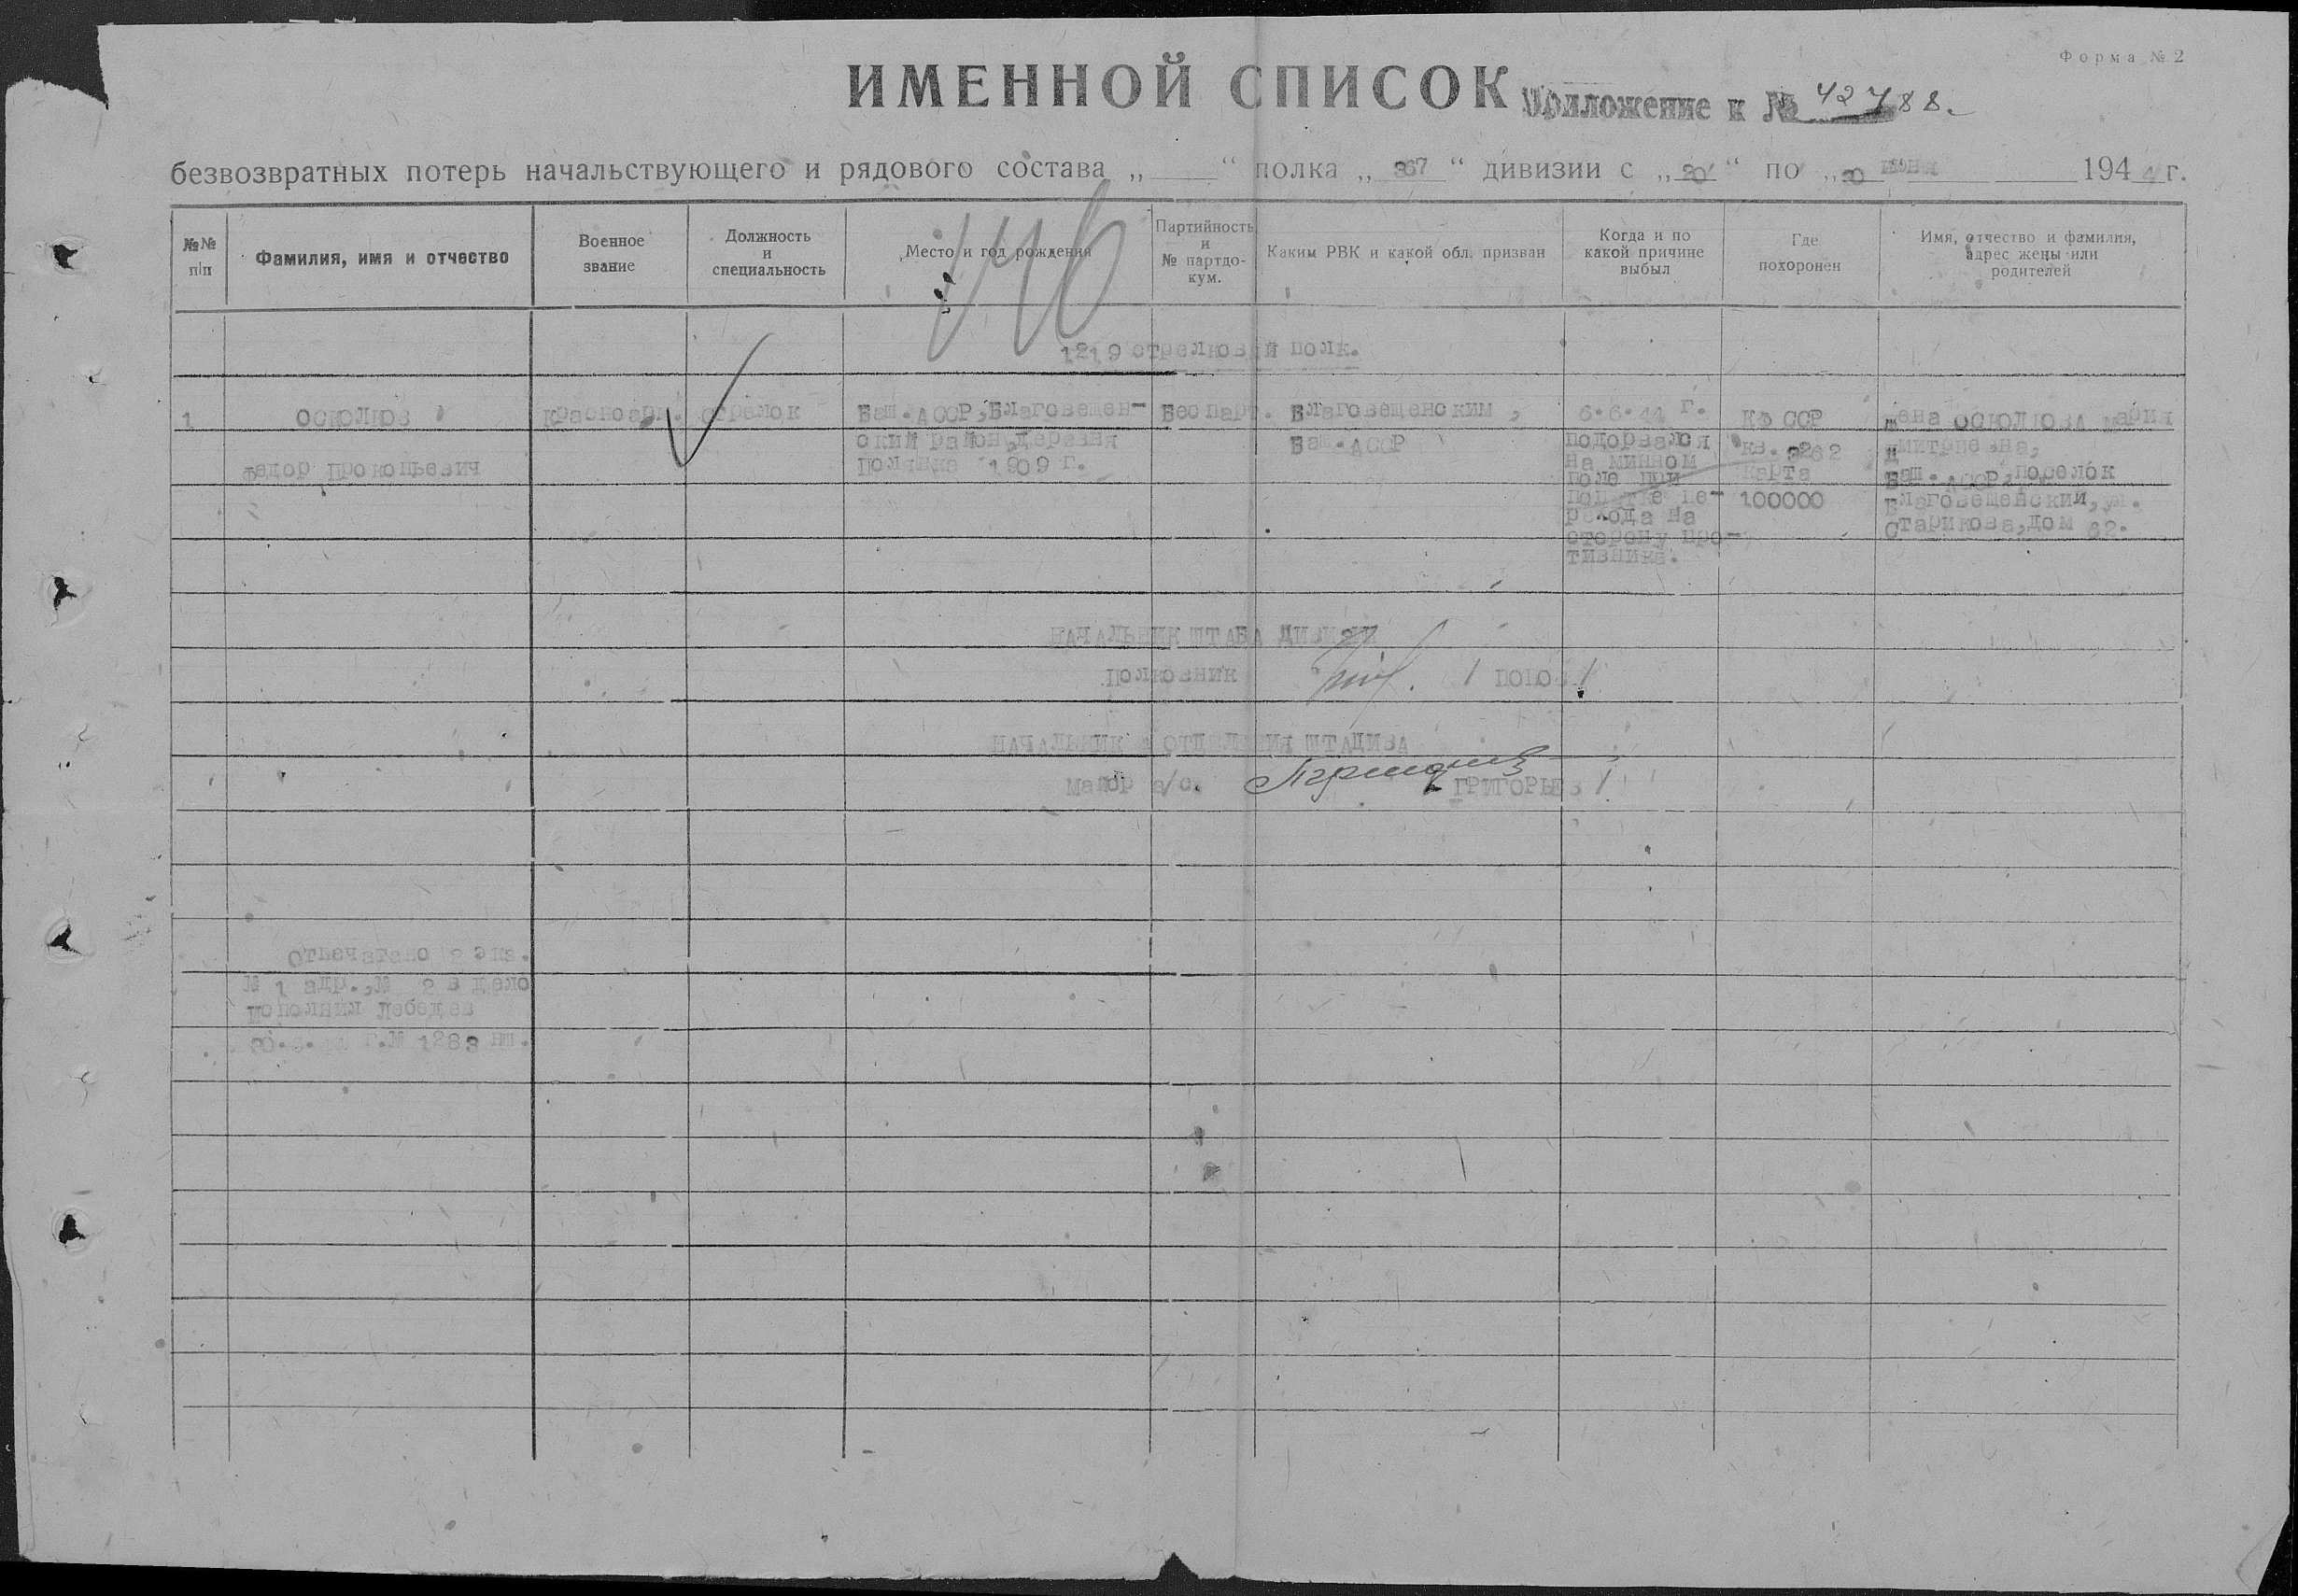 Форма № 2
ИМЕННОЙ СПИСОК
Приложение к № 42788.
безвозвратных потерь начальствующего и рядового состава „ “ полка „ 367 “ дивизии с „ 20 “ по „ 30 июня 1944 г.
№№ п/п
Фамилия, имя и отчество
Военное звание
Должность и специальность
Место и год рождения
Партийность и № партдо-кум.
Каким РВК и какой обл. призван
Когда и по какой причине выбыл
Где похоронен
Имя, отчество и фамилия, адрес жены или родителей
146
1219 стрелковый полк.
1
ОСКОЛКОВ
Федор Прокопьевич
Красноарм.
стрелок
Баш.АССР,Благовещен-
ский район,деревня
1909 г.
Беспарт.
Благовещенским,
Баш.АССР
6.6.44 г.
подорвался
на минном
поле при
попытке пе-
рехода на
сторону про-
тивника.
КФ ССР
кв. 9262
карта
100000
жена ОСКОЛКОВА Мария
Дмитриевна,
Баш.АССР,поселок
Благовещенский,ул.
Старикова,дом 62.
НАЧАЛЬНИК ШТАБА ДИВИЗИИ
Полковник / /
НАЧАЛЬНИК ОТДЕЛЕНИЯ ШТАДИВА
Майор а/с. / ГРИГОРЬЕВ /
Отпечатано 2 экз.
№ 1 адр.,№ 2 в дело
исполнил Лебедев
г.№ 1283 нш.